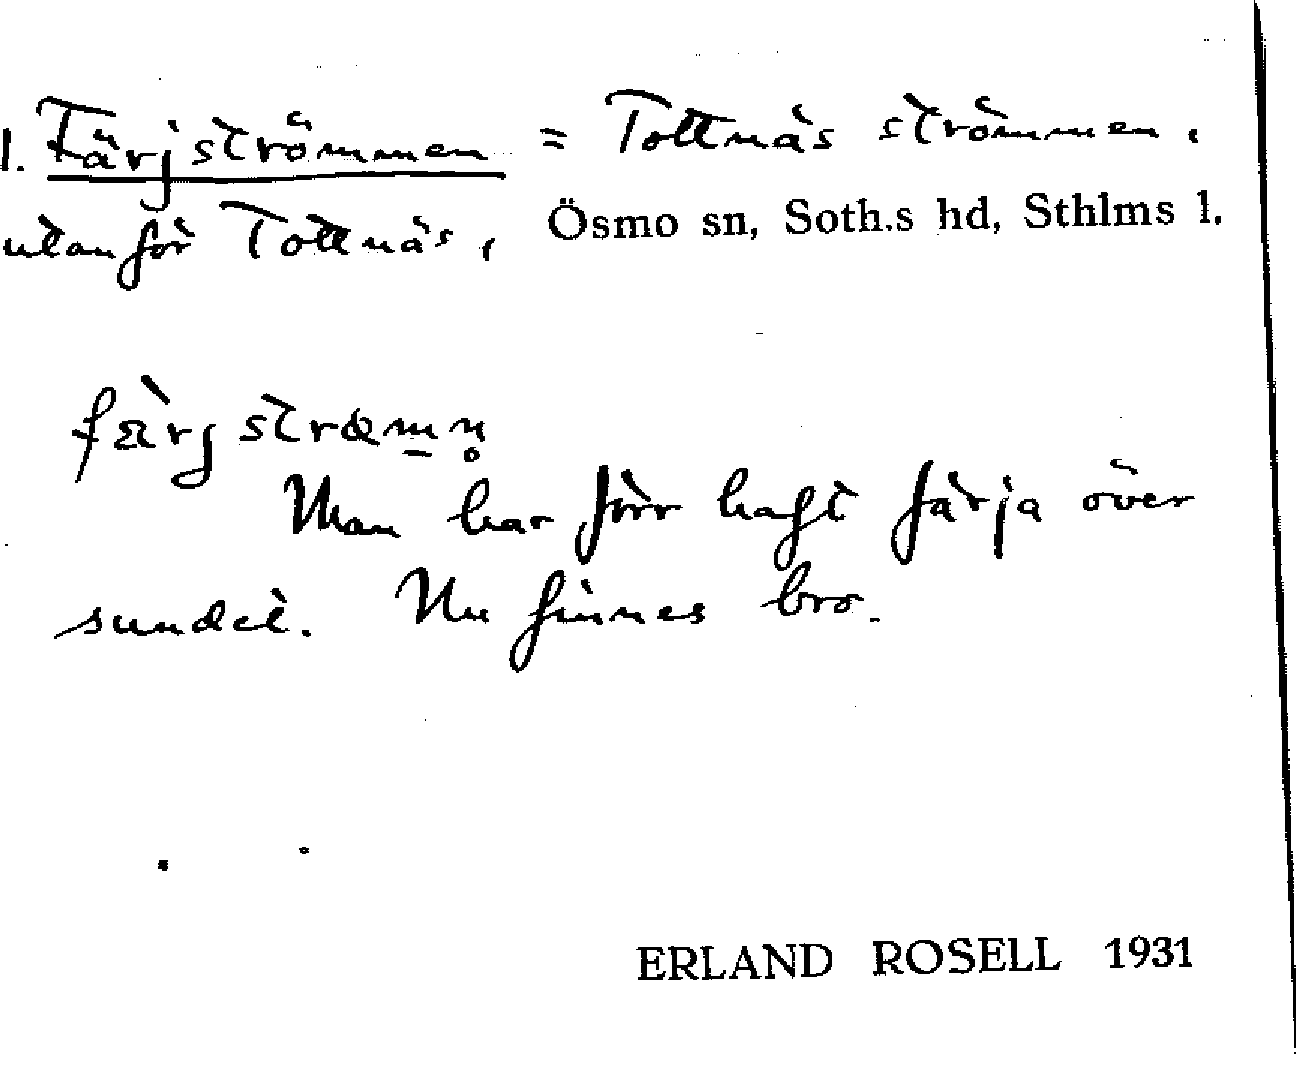 1. Färjströmmen = Tottnäs strömmen,
utanför Tottnäs, Ösmo sn, Soth.s hd, Sthlms l.
fä̀rjstrœm̲n̥
Man har förr haft färja över
sundet. Nu finnes bro.
ERLAND ROSELL 1931